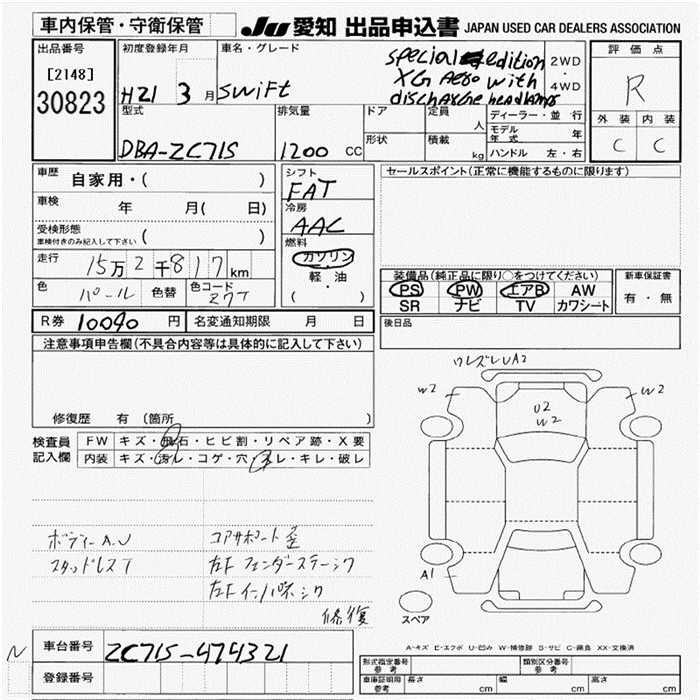 車内保管・守衛保管
JU 愛知 出品申込書 JAPAN USED CAR DEALERS ASSOCIATION
出品番号
[2148]
30823
初度登録年月
H21 3月
車名・グレード
SWIFT
special edition
XG Aero with
discharge headlamps
2WD
・
4WD
評価点
R
外装 内装
C C
型式
DBA-ZC71S
排気量
1200 CC
ドア
形状
定員
人
積載
kg
ディーラー・並行
モデル年式 年
ハンドル 左・右
車歴 自家用・( )
車検 年 月( 日)
受検形態
車検付きのみ記入して下さい ( )
走行 15万2千817km
色 パール 色替 色コード Z7T
シフト
FAT
冷房
AAC
燃料
ガソリン
軽・油
( )
セールスポイント(正常に機能するものに限ります)
装備品(純正品に限り○をつけてください)
PS PW エアB AW
SR ナビ TV カワシート
新車保証書
有・無
R券 10090 円 名変通知期限 月 日
後日品
注意事項申告欄(不具合内容等は具体的に記入して下さい)
修復歴 有 (箇所 )
検査員
記入欄
FW キズ・飛石・ヒビ割・リペア跡・X要
内装 キズ・汚レ・コゲ・穴・スレ・キレ・破レ
ワレズレUA2
W2
W2
U2
W2
A1
スペア
ボディーA.U
スタッドレスT
コアサポート歪
左F フェンダーステーシワ
左F インパネシワ
修復
N
車台番号 ZC71S-474321
登録番号
A-キズ E-エクボ U-凹み W-補修跡 S-サビ C-腐食 XX-交換済
形式指定番号
参考
類別区分番号
参考
車庫証明用
参考
長さ cm 幅 cm 高さ cm